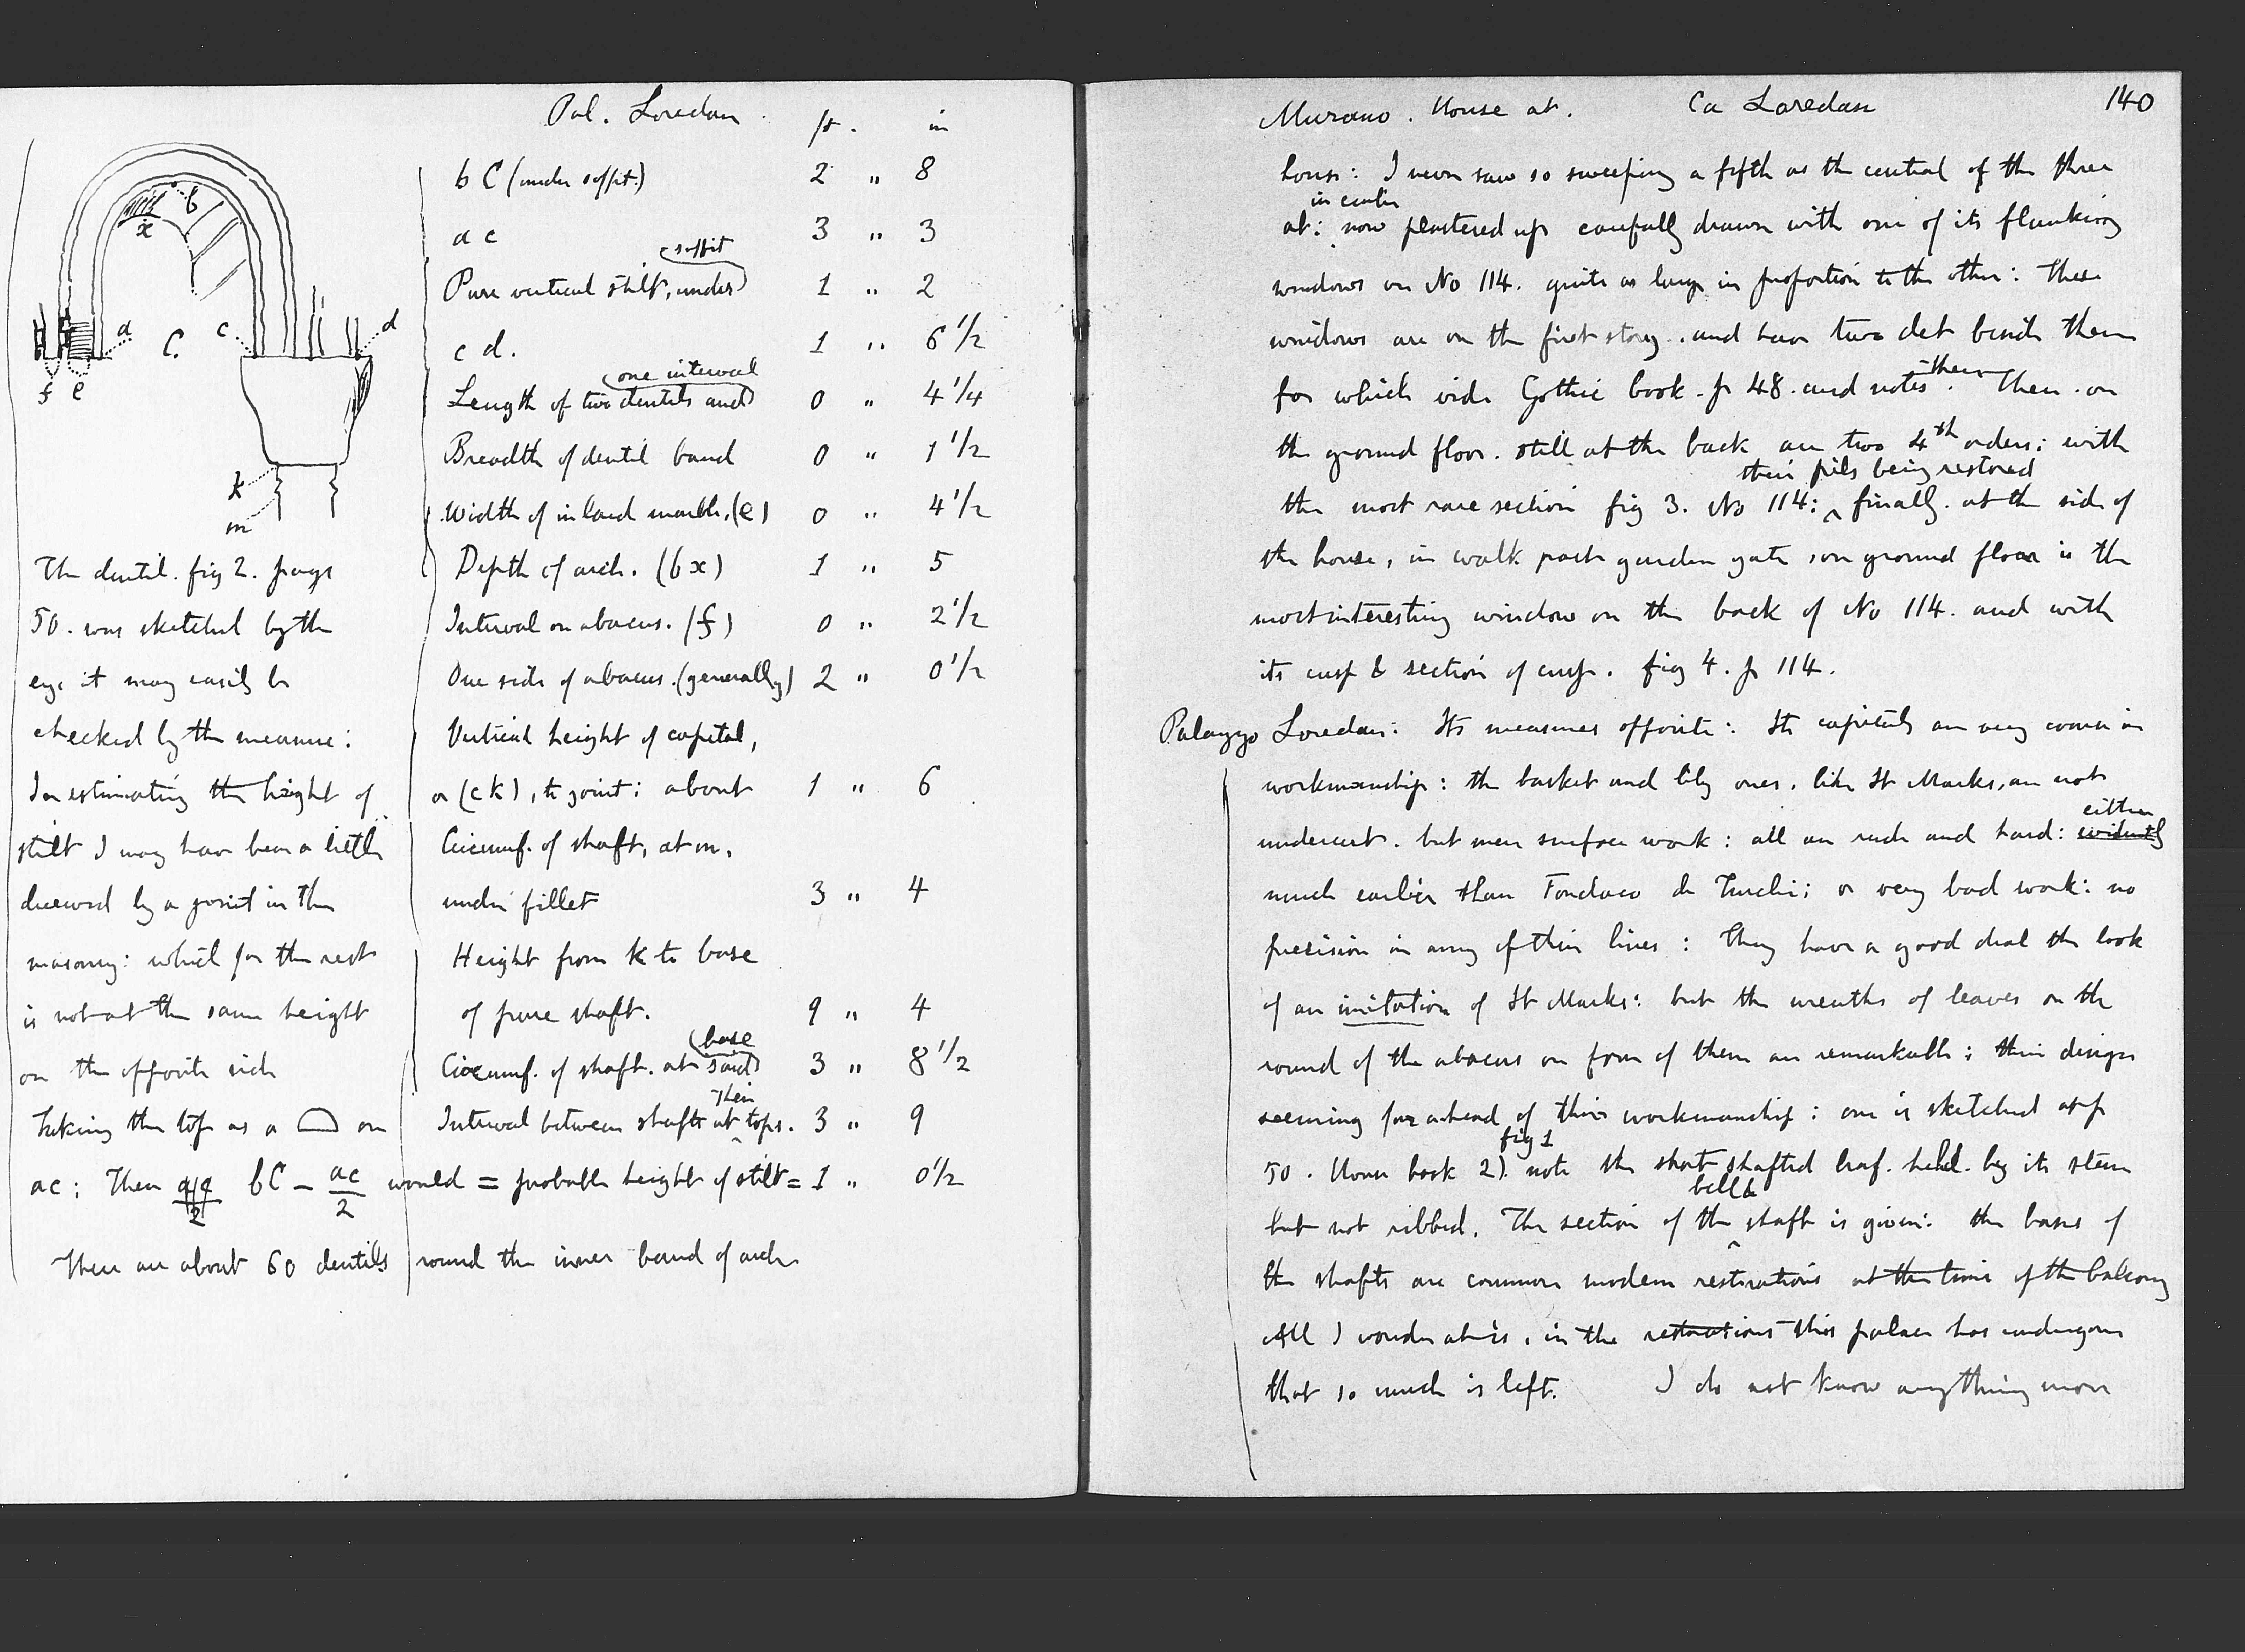 Pal. Loredan
ft. in
b C (under soffit.) 2 " 8
a c 3 " 3
soffit
Pure vertical stilt, under 1 " 2
c d. 1 " 6 1/2
one interval
Length of two dentils and 0 " 4 1/4
Breadth of dentil band 0 " 1 1/2
Width of inlaid marble, (e) 0 " 4 1/2
Depth of arch. (b x) 1 " 5
Interval on abacus. (f) 0 " 2 1/2
One side of abacus. (generally) 2 " 0 1/2
Vertical height of capital,
or (c k), to joint: about 1 " 6
Circumf. of shaft, at m,
under fillet 3 " 4
Height from k to base
of pure shaft. 9 " 4
base
Circumf. of shaft. at said 3 " 8 1/2
their
Interval between shafts at tops. 3 " 9
b
x
a C. c d
f e
k
m
The dentil. fig 2. page
50. was sketched by the
eye it may easily be
checked by the measure:
In estimating the height of
stilt I may have been a little
deceived by a joint in the
masonry: which for the rest
is not at the same height
on the opposite side
Taking the top as a on
ac: Then bC - ac/2 would = probable height of stilt = 1 " 0 1/2
There are about 60 dentils round the inner band of arch
Murano. House at. Ca Loredan 140
house: I never saw so sweeping a fifth as the central of the three
in centre
at: now plastered up carefully drawn with one of its flanking
windows on No 114. quite as large in proportion to the other: These
windows are on the first story. and have two det beside them
for which vide Gothic book. p 48. and notes there. Then on
the ground floor. still at the back are two 4th orders: with
their pils being restored
the most rare section fig 3. No 114: finally. at the side of
the house, in walk past garden gate, on ground floor is the
most interesting window on the back of No 114. and with
its cusp & section of cusp. fig 4. p 114.
Palazzo Loredan: Its measures opposite: Its capitals are very coarse in
workmanship: the basket and lily ones, like St Marks, are not
either
undercut. but mere surface work: all are rude and hard: evidently
much earlier than Fondaco de Turchi; or very bad work: no
precision in any of their lines: They have a good deal the look
of an imitation of St Marks: but the wreaths of leaves on the
round of the abacus on four of them are remarkable; their design
seeming far ahead of their workmanship: one is sketched at p
fig 1
50. House book 2). note the short shafted leaf. held. by its stem
bell &
but not ribbed. The section of the shaft is given: the bases of
the shafts are common modern restorations at the time of the balcony
All I wonder at is, in the restorations this palace has undergone
that so much is left. I do not know anything more